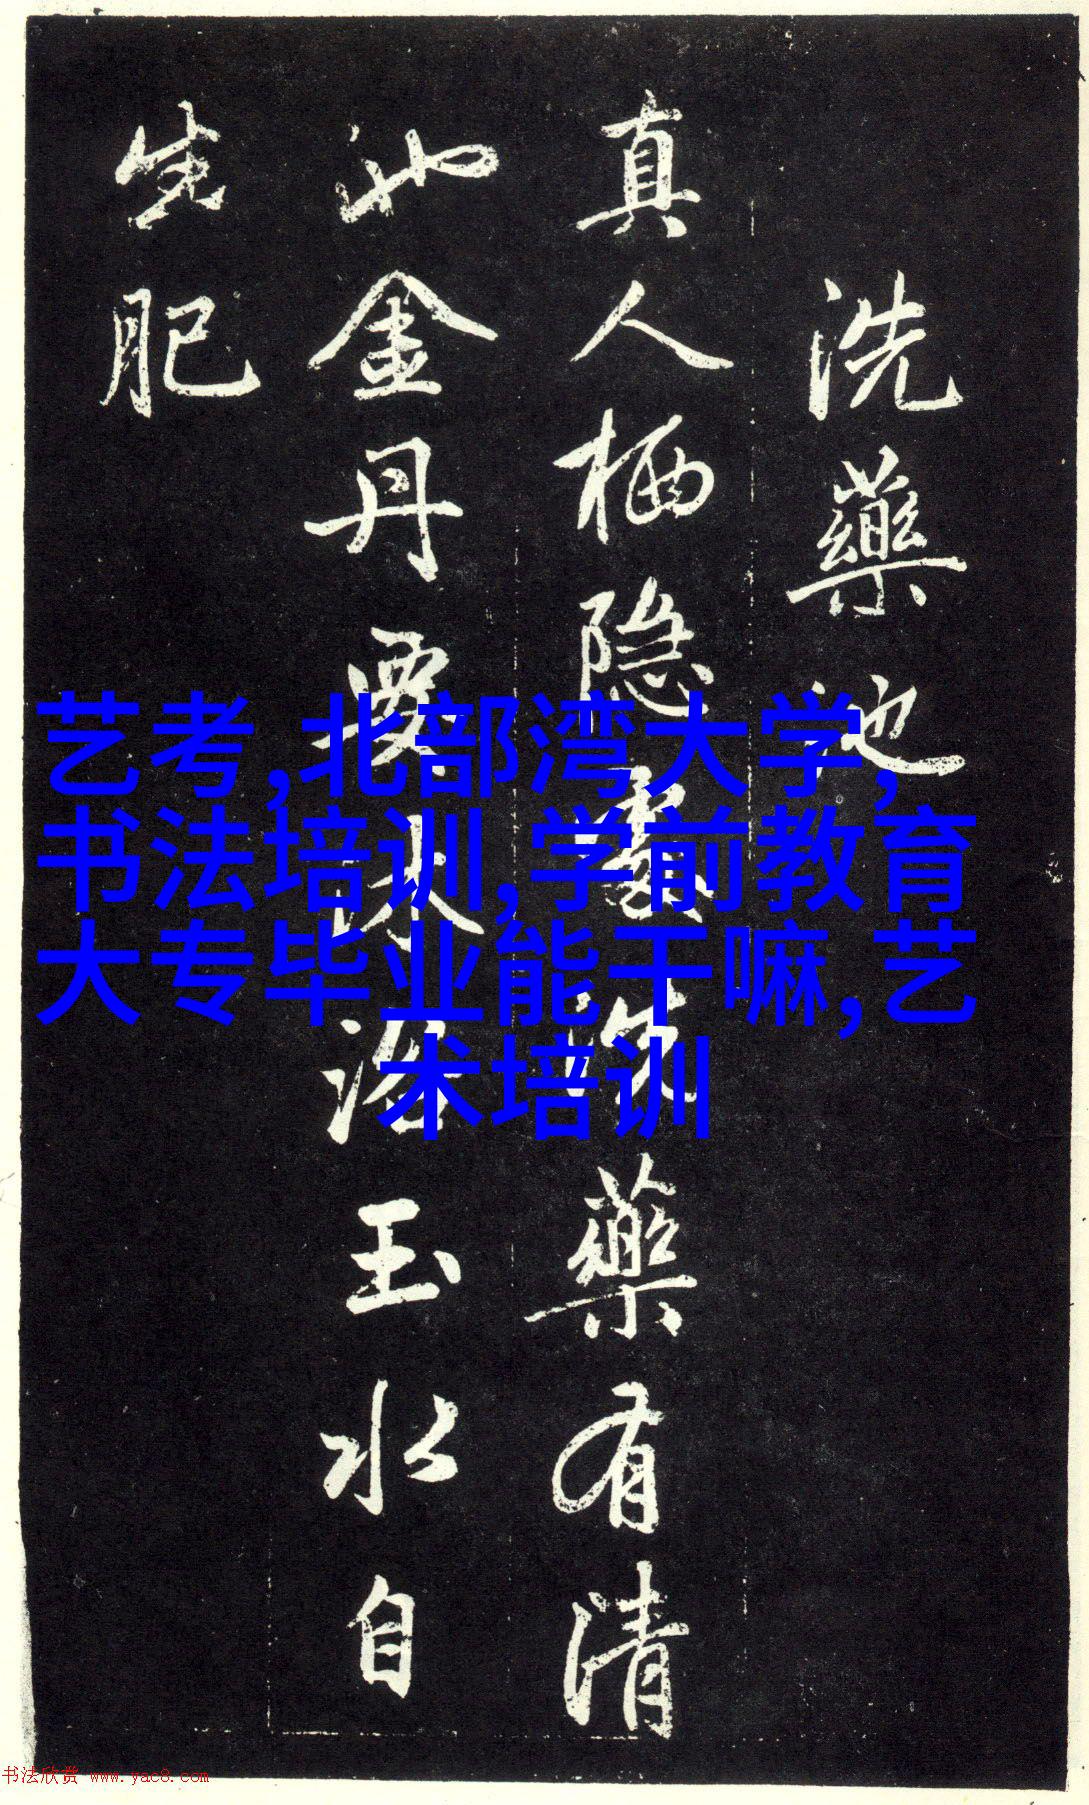 洗藥池
真人栖隐處洗藥有清
池金丹要沐浴玉水自
生肥
艺考,北部湾大学,
书法培训,学前教育
大专毕业能干嘛,艺
术培训
书法欣赏 www.yac8.com